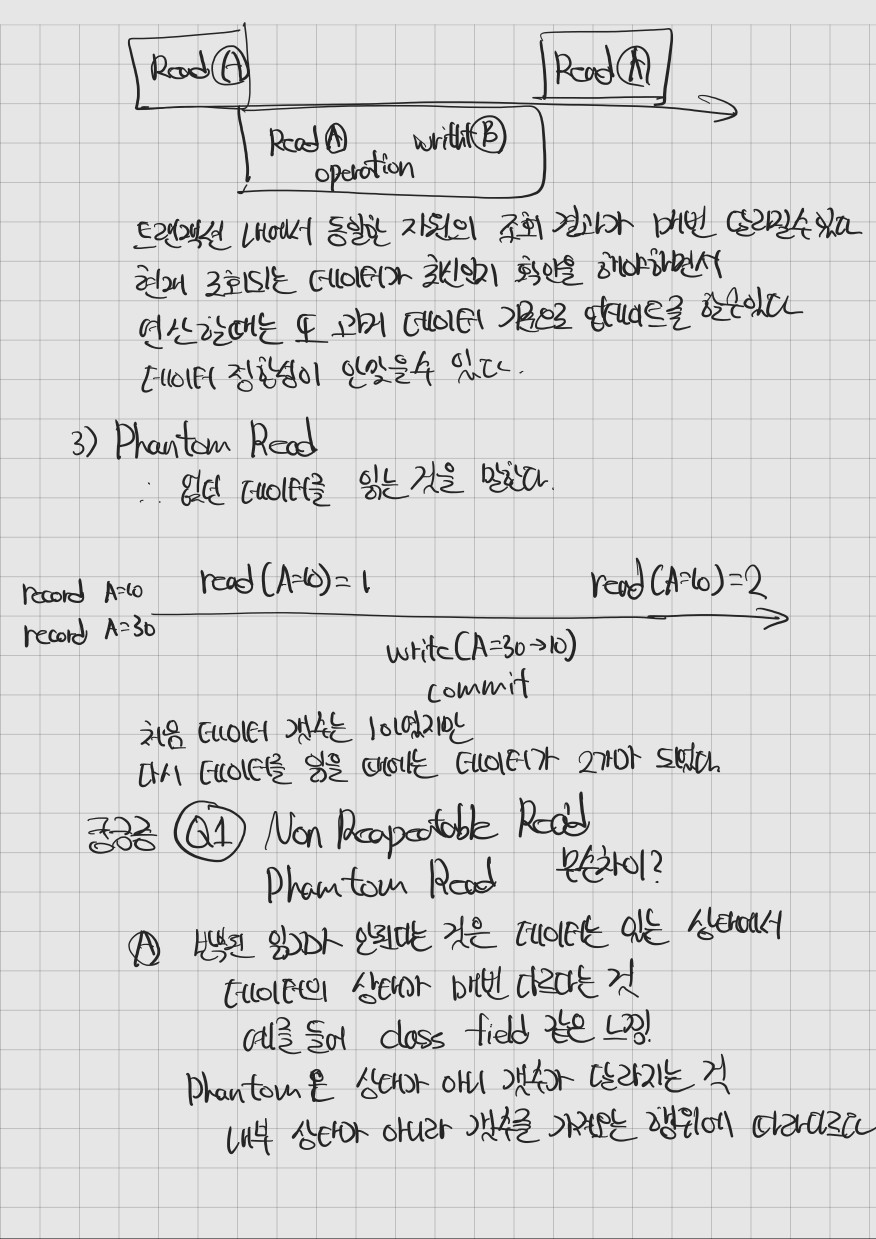 Read A
Read A
Read A writht B
operation
트랜잭션 내에서 동일한 자원의 조회 결과가 매번 달라질수있다
현재 조회되는 데이터가 최신인지 확인을 해야하면서
연산할때는 또 과거 데이터 기준으로 업데이트를 할수있다
데이터 정합성이 안맞을수 있다.
3) Phantom Read
∴ 없던 데이터를 읽는 것을 말한다.
read (A=10) = 1
read (A=10) = 2
record A=10
record A=30
write (A=30→10)
commit
처음 데이터 갯수는 1이었지만
다시 데이터를 읽을 때에는 데이터가 2개가 되었다
궁금증 Q1 Non Reapeatable Read
Phamtom Read 무슨차이?
A 반복된 읽기가 안된다는 것은 데이터는 있는 상태에서
데이터의 상태가 매번 다르다는 것
예를 들어 class field 같은 느낌!
Phantom은 상태가 아니 갯수가 달라지는 것
내부 상태가 아니라 갯수를 가져오는 행위에 따라다르다